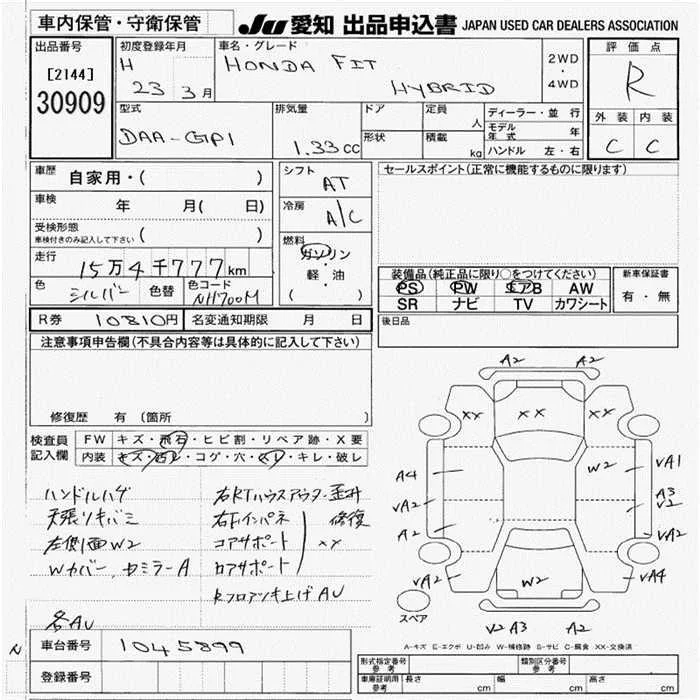 車内保管・守衛保管
JU 愛知 出品申込書 JAPAN USED CAR DEALERS ASSOCIATION
出品番号
[2144]
30909
初度登録年月
H 23 3月
車名・グレード
HONDA FIT
HYBRID
2WD
・
4WD
評価点
R
外装 内装
C C
型式
DAA-GP1
排気量
1.33cc
ドア
形状
定員
人
積載
kg
ディーラー・並行
モデル年式 年
ハンドル 左・右
車歴
自家用・( )
車検
年 月( 日)
受検形態
車検付きのみ記入して下さい ( )
走行
15万4千777km
色
シルバー
色替
色コード
NH700M
シフト
AT
冷房
A/C
燃料
ガソリン
・
軽・油
( )
セールスポイント(正常に機能するものに限ります)
装備品(純正品に限り○をつけてください)
PS PW エアB AW
SR ナビ TV カワシート
新車保証書
有・無
R券 10810円
名変通知期限 月 日
後日品
注意事項申告欄(不具合内容等は具体的に記入して下さい)
修復歴 有(箇所
検査員
記入欄
FW キズ・飛石・ヒビ割・リペア跡・X要
内装 キズ・汚レ・コゲ・穴・スレ・キレ・破レ
ハンドルハゲ
天張リキバミ
左側面W2
Wカバー、セミラーA
各AU
右RTハウスアウター歪み
右Fインパネ 修復
コアサポート XX
ロアサポート
Rフロアツキ上げAU
A2 A2
XX XX XX
A4 W2 VA1
VA2 A3
V2
A2 VA2
VA2 W2 VA4
スペア
V2 A3 A2
A-キズ E-エクボ U-凹み W-補修跡 S-サビ C-腐食 XX-交換済
N
車台番号 1045899
登録番号
形式指定番号
参考
類別区分番号
参考
車庫証明用
参考
長さ cm 幅 cm 高さ cm